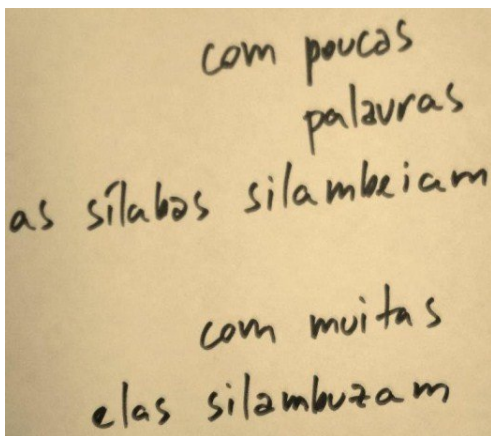 com poucas
palavras
as sílabas silambeiam
com muitas
elas silambuzam